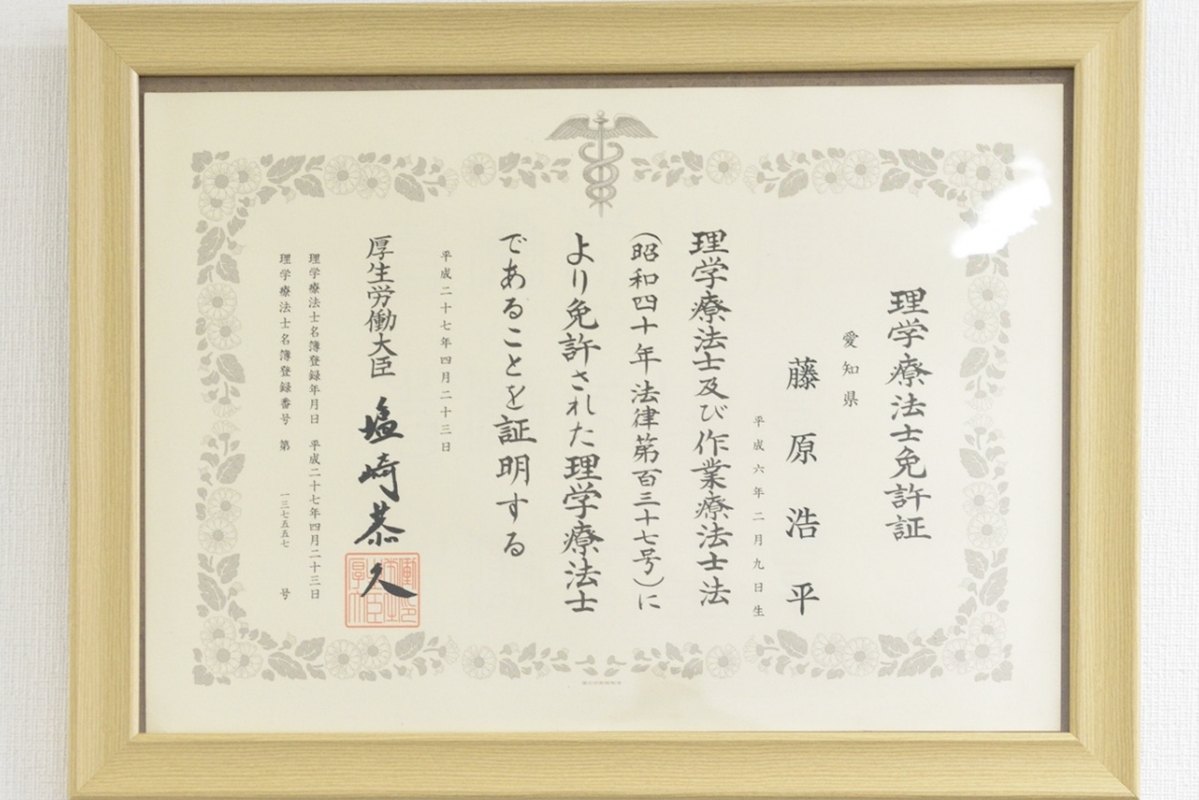 理学療法士免許証
愛知県
藤原浩平
平成六年二月九日生
理学療法士及び作業療法士法
(昭和四十年法律第百三十七号)に
より免許された理学療法士
であることを証明する
平成二十七年四月二十三日
厚生労働大臣 塩崎恭久
理学療法士名簿登録年月日 平成二十七年四月二十三日
理学療法士名簿登録番号 第 一三七五五七 号